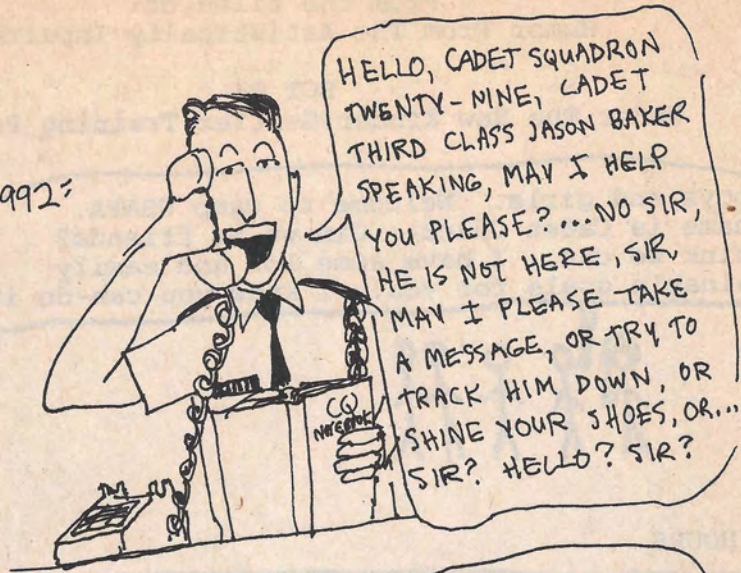 992:
HELLO, CADET SQUADRON
TWENTY-NINE, CADET
THIRD CLASS JASON BAKER
SPEAKING, MAY I HELP
YOU PLEASE? ...NO SIR,
HE IS NOT HERE, SIR.
MAY I PLEASE TAKE
A MESSAGE, OR TRY TO
TRACK HIM DOWN, OR
SHINE YOUR SHOES, OR...
SIR? HELLO? SIR?
CQ